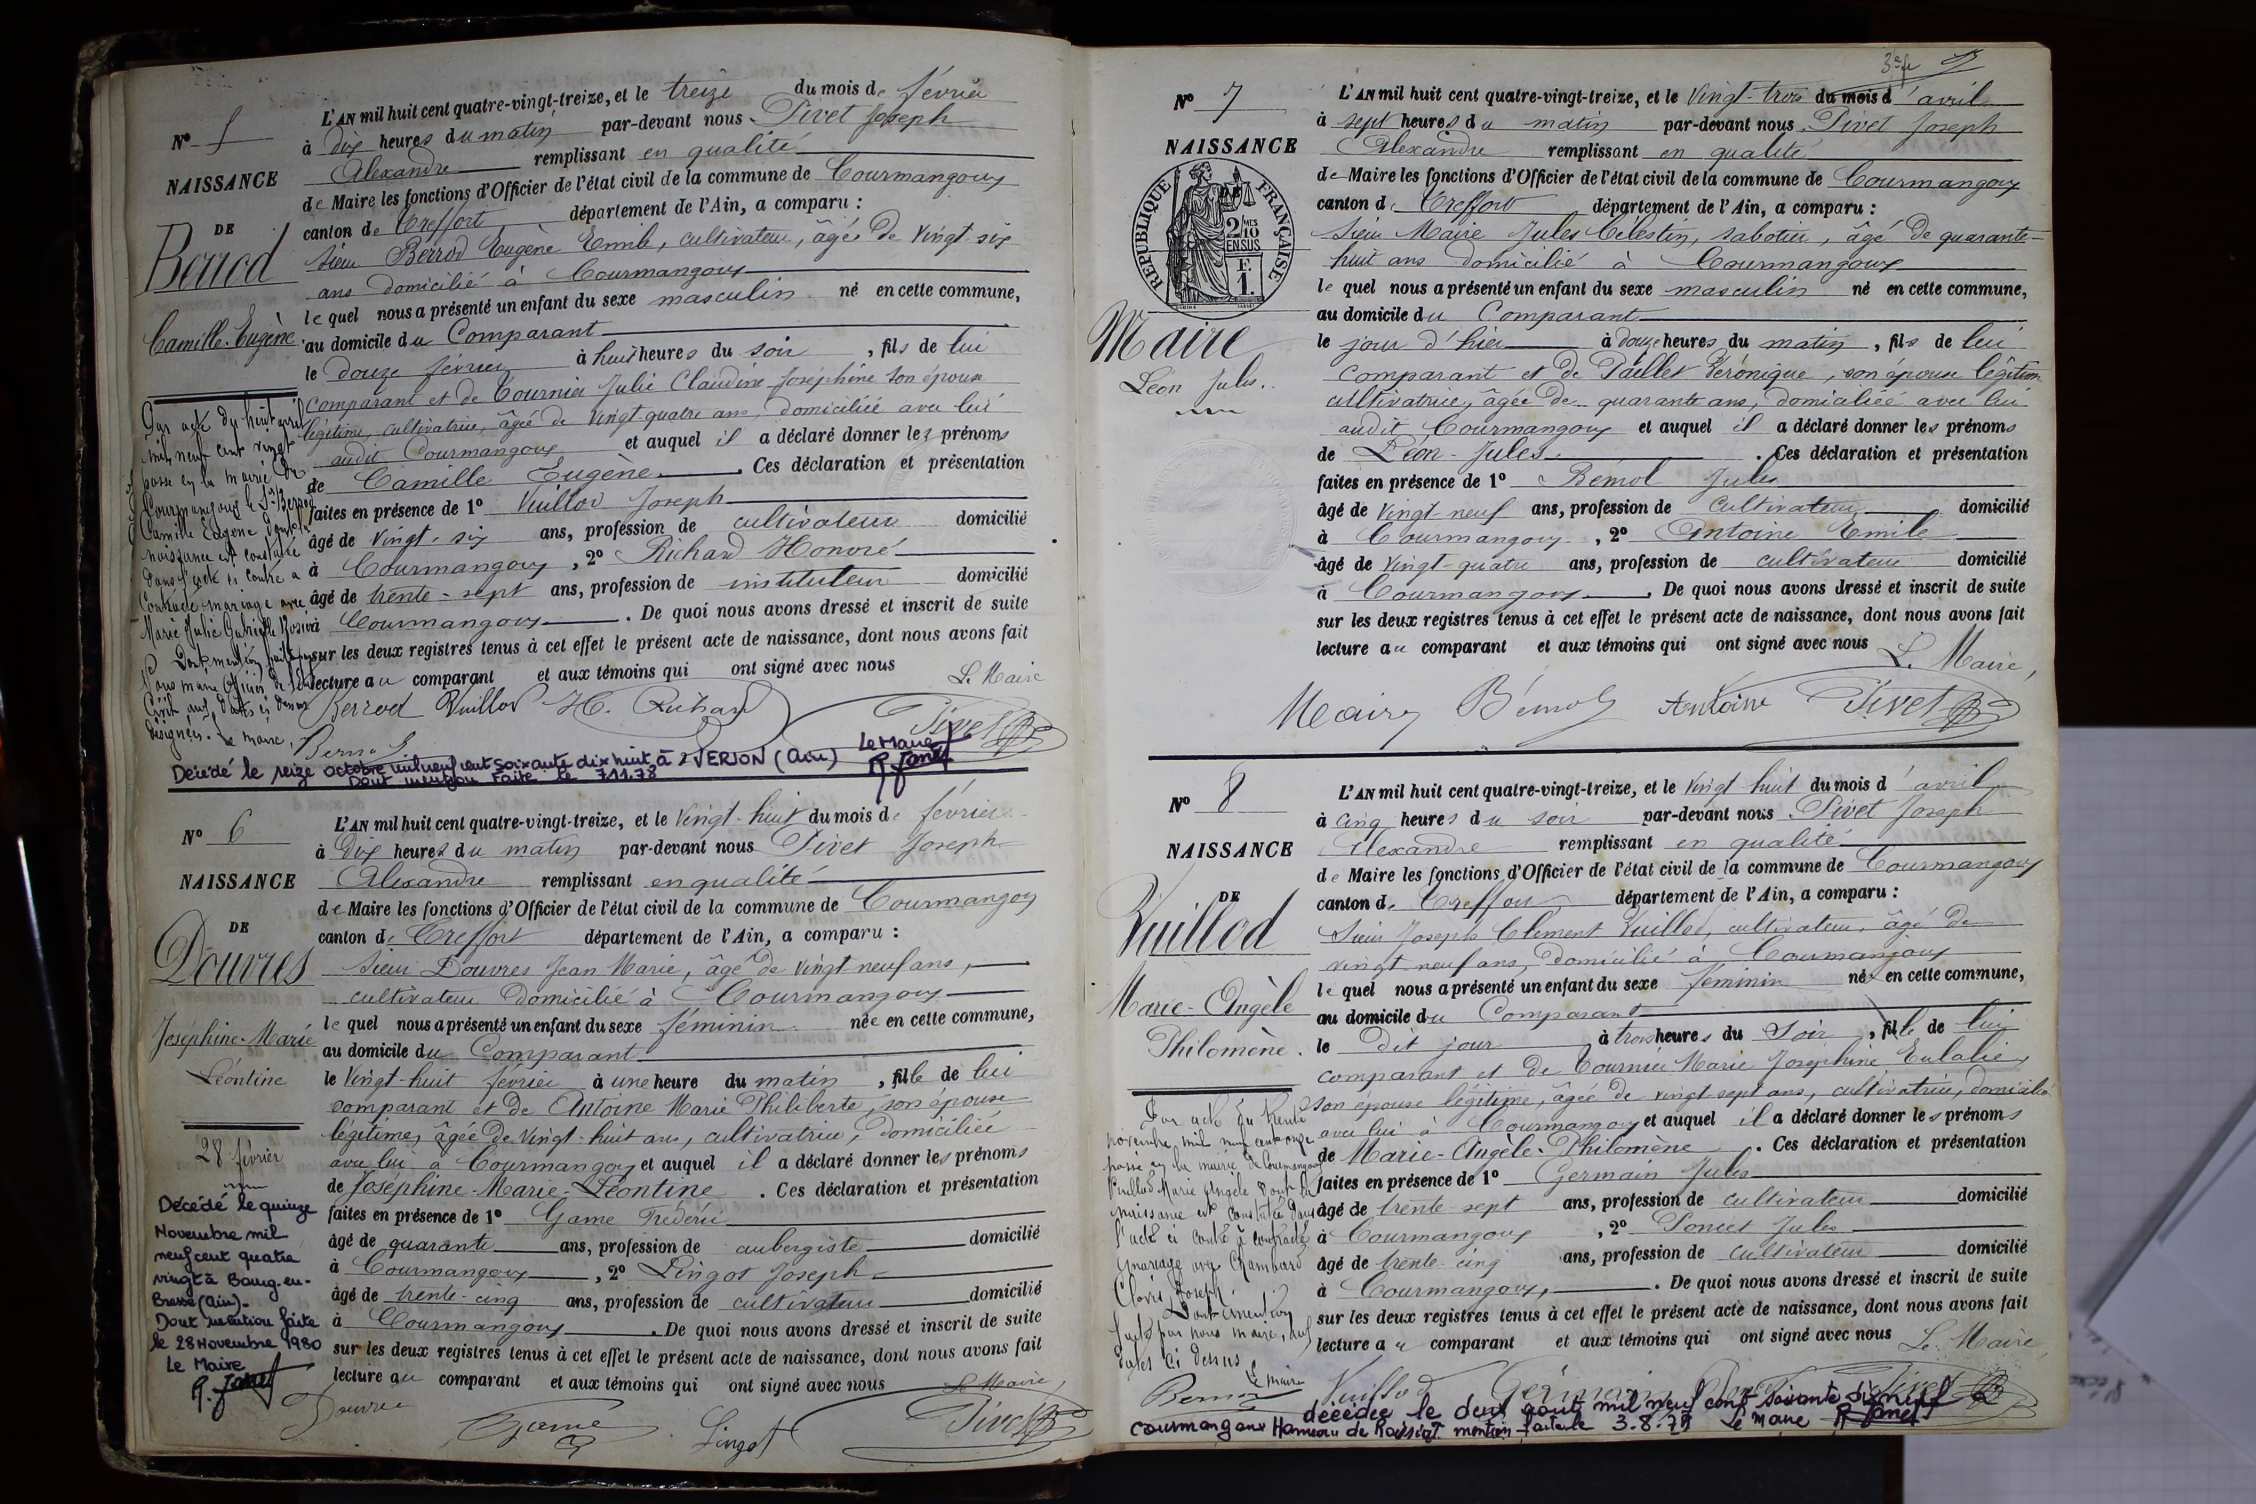 N° 5
NAISSANCE
DE
Berrod
Camille-Eugène
L'AN mil huit cent quatre-vingt-treize, et le treize du mois de février
à dix heures du matin par-devant nous Pivet Joseph
Alexandre remplissant en qualité
de Maire les fonctions d'Officier de l'état civil de la commune de Courmangoux
canton de Treffort département de l'Ain, a comparu :
sieur Berrod Eugène Emile, cultivateur, âgé de vingt-six
ans domicilié à Courmangoux
lequel nous a présenté un enfant du sexe masculin né en cette commune,
au domicile du Comparant
le douze février à huit heures du soir, fils de lui
comparant et de Tournier Julie Claudine Joséphine son épouse
légitime, cultivatrice, âgée de vingt quatre ans, domiciliée avec lui
audit Courmangoux et auquel il a déclaré donner les prénoms
de Camille Eugène. Ces déclaration et présentation
faites en présence de 1° Vuillod Joseph
âgé de vingt-six ans, profession de cultivateur domicilié
à Courmangoux, 2° Richard Honoré
âgé de trente-sept ans, profession de instituteur domicilié
à Courmangoux. De quoi nous avons dressé et inscrit de suite
sur les deux registres tenus à cet effet le présent acte de naissance, dont nous avons fait
lecture au comparant et aux témoins qui ont signé avec nous
Le Maire
Berrod Vuillod H. Richard Pivet
Par acte du huit avril
mil neuf cent vingt
passé en la mairie de
Courmangoux le Sr Berrod
Camille Eugène dont la
naissance est constatée
dans l'acte ci contre a
contracté mariage avec
Marie Julie Gabrielle
Dont mention faite par
nous maire officier de l'état
civil aux dates ci dessus
désignées. Le maire,
Décédé le seize octobre mil neuf cent soixante dix huit à VERJON (Ain)
Dont mention faite le 7.11.78
Le Maire
R. Janet
N° 6
NAISSANCE
DE
Douvres
Joséphine-Marie
Léontine
28 février
L'AN mil huit cent quatre-vingt-treize, et le vingt-huit du mois de février
à dix heures du matin par-devant nous Pivet Joseph
Alexandre remplissant en qualité
de Maire les fonctions d'Officier de l'état civil de la commune de Courmangoux
canton de Treffort département de l'Ain, a comparu :
sieur Douvres Jean Marie, âgé de vingt neuf ans,
cultivateur domicilié à Courmangoux
lequel nous a présenté un enfant du sexe féminin née en cette commune,
au domicile du Comparant
le vingt-huit février à une heure du matin, fille de lui
comparant et de Antoine Marie Philiberte, son épouse
légitime, âgée de vingt-huit ans, cultivatrice, domiciliée
avec lui à Courmangoux et auquel il a déclaré donner les prénoms
de Joséphine-Marie-Léontine. Ces déclaration et présentation
faites en présence de 1° Game Frédéric
âgé de quarante ans, profession de aubergiste domicilié
à Courmangoux, 2° Lingot Joseph
âgé de trente-cinq ans, profession de cultivateur domicilié
à Courmangoux. De quoi nous avons dressé et inscrit de suite
sur les deux registres tenus à cet effet le présent acte de naissance, dont nous avons fait
lecture au comparant et aux témoins qui ont signé avec nous
Le Maire,
Douvres Game Lingot Pivet
Décédé le quinze
Novembre mil
neuf cent quatre
vingt à Bourg-en-
Bresse (Ain).
Dont mention faite
le 28 Novembre 1980
Le Maire
R. Janet
3e f
N° 7
NAISSANCE
DE
RÉPUBLIQUE FRANÇAISE
2/10 MES EN SUS
F.
1.
Maire
Léon Jules.
L'AN mil huit cent quatre-vingt-treize, et le vingt-trois du mois d'avril
à sept heures du matin par-devant nous Pivet Joseph
Alexandre remplissant en qualité
de Maire les fonctions d'Officier de l'état civil de la commune de Courmangoux
canton de Treffort département de l'Ain, a comparu :
sieur Maire Jules Célestin, sabotier, âgé de quarante-
huit ans domicilié à Courmangoux
lequel nous a présenté un enfant du sexe masculin né en cette commune,
au domicile du Comparant
le jour d'hier à douze heures du matin, fils de lui
comparant et de Paillet Véronique, son épouse légitime
cultivatrice, âgée de quarante ans, domiciliée avec lui
audit Courmangoux et auquel il a déclaré donner les prénoms
de Léon-Jules. Ces déclaration et présentation
faites en présence de 1° Bémol Jules
âgé de vingt neuf ans, profession de cultivateur domicilié
à Courmangoux, 2° Antoine Emile
âgé de vingt-quatre ans, profession de cultivateur domicilié
à Courmangoux. De quoi nous avons dressé et inscrit de suite
sur les deux registres tenus à cet effet le présent acte de naissance, dont nous avons fait
lecture au comparant et aux témoins qui ont signé avec nous
Le Maire,
Maire Bémol Antoine Pivet
N° 8
NAISSANCE
DE
Vuillod
Marie-Angèle
Philomène.
L'AN mil huit cent quatre-vingt-treize, et le vingt huit du mois d'avril
à cinq heures du soir par-devant nous Pivet Joseph
Alexandre remplissant en qualité
de Maire les fonctions d'Officier de l'état civil de la commune de Courmangoux
canton de Treffort département de l'Ain, a comparu :
Sieur Joseph Clément Vuillod, cultivateur, âgé de
vingt neuf ans, domicilié à Courmangoux
lequel nous a présenté un enfant du sexe féminin née en cette commune,
au domicile du Comparant
le dit jour à trois heures du soir, fille de lui
comparant et de Tournier Marie Joséphine Eulalie
son épouse légitime, âgée de vingt-sept ans, cultivatrice, domiciliée
avec lui à Courmangoux et auquel il a déclaré donner les prénoms
de Marie-Angèle-Philomène. Ces déclaration et présentation
faites en présence de 1° Germain Jules
âgé de trente-sept ans, profession de cultivateur domicilié
à Courmangoux, 2° Poncet Jules
âgé de trente-cinq ans, profession de cultivateur domicilié
à Courmangoux. De quoi nous avons dressé et inscrit de suite
sur les deux registres tenus à cet effet le présent acte de naissance, dont nous avons fait
lecture au comparant et aux témoins qui ont signé avec nous
Le Maire
Vuillod Germain Pivet
Par acte du trente
novembre mil neuf cent onze
passé en la mairie de Courmangoux
Vuillod Marie Angèle dont la
naissance est constatée dans
l'acte ci contre a contracté
mariage avec Chambard
Clovis Joseph.
Dont mention
faite par nous maire, aux
dates ci dessus
Le maire
décédée le deux août mil neuf cent soixante dix neuf à
Courmangoux Hameau de Roissiat mention faite le 3.8.79 Le Maire R. Janet